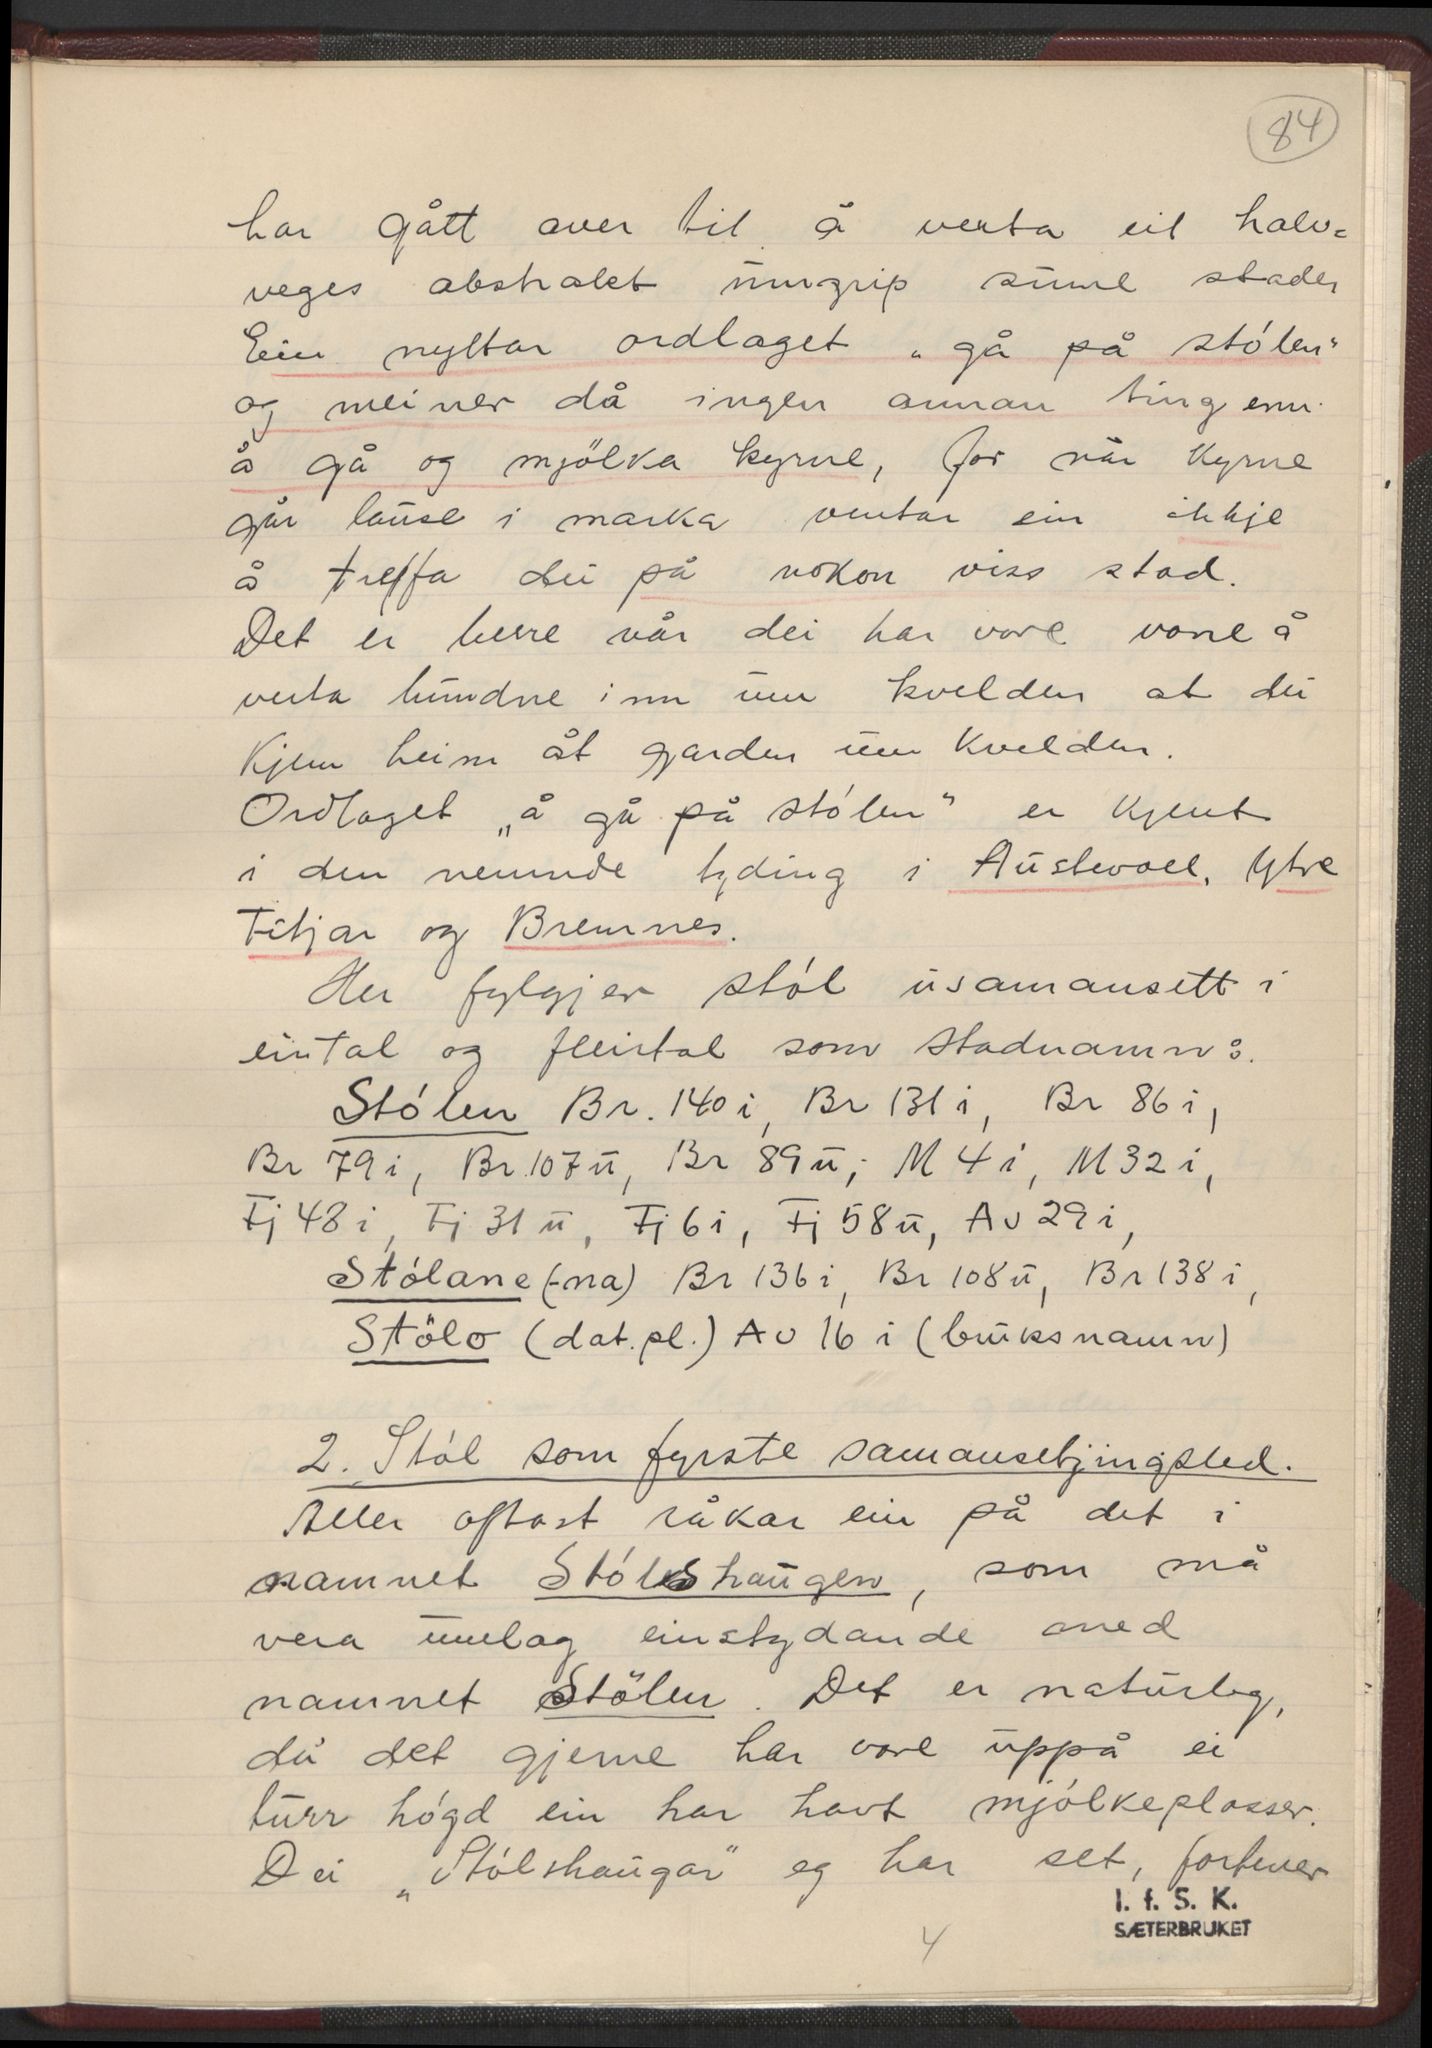 84
har gått over til å verta eit halv=
veges abstrakt umgrip sume stader
Ein nyttar ordlaget „gå på stólen"
og meiner då ingen annan ting enn
å gå og mjölka kyrne, for når kyrne
går lause i marka ventar ein ikkje
å treffa dei på nokon viss stad.
Det er berre når dei har vore vane å
verta bundne inn um kvelden at dei
kjem heim åt garden um kvelden.
Ordlaget „å gå på stólen" er kjent
i den nemnde tyding i Austevoll, Ytre
Fitjar og Bremnes.
Her fylgjer stól usamansett i
eintal og fleirtal som stadnamn:
Stólen Br. 140 i, Br 131 i, Br 86 i,
Br 79 i, Br. 107 ŭ, Br 89 ŭ; M 4 i, M 32 i,
Fj 48 i, Fj 31 ŭ, Fj 6 i, Fj 58 ŭ, Au 29 i,
Stólane (-na) Br 136 i, Br 108 ŭ, Br 138 i,
Stölo (dat. pl.) Au 16 i (bruksnamn)
2. Stól som fyrste samansetjingsled.
Aller oftast råkar ein på det i
namnet Stólshaugen, som må
vera umlag einstydande med
namnet Stölen. Det er naturleg,
då det gjerne har vore uppå ei
turr högd ein har havt mjólkeplasser.
Dei „Stólshaugar" eg har set, fortener
I. f. S. K.
SÆTERBRUKET
4